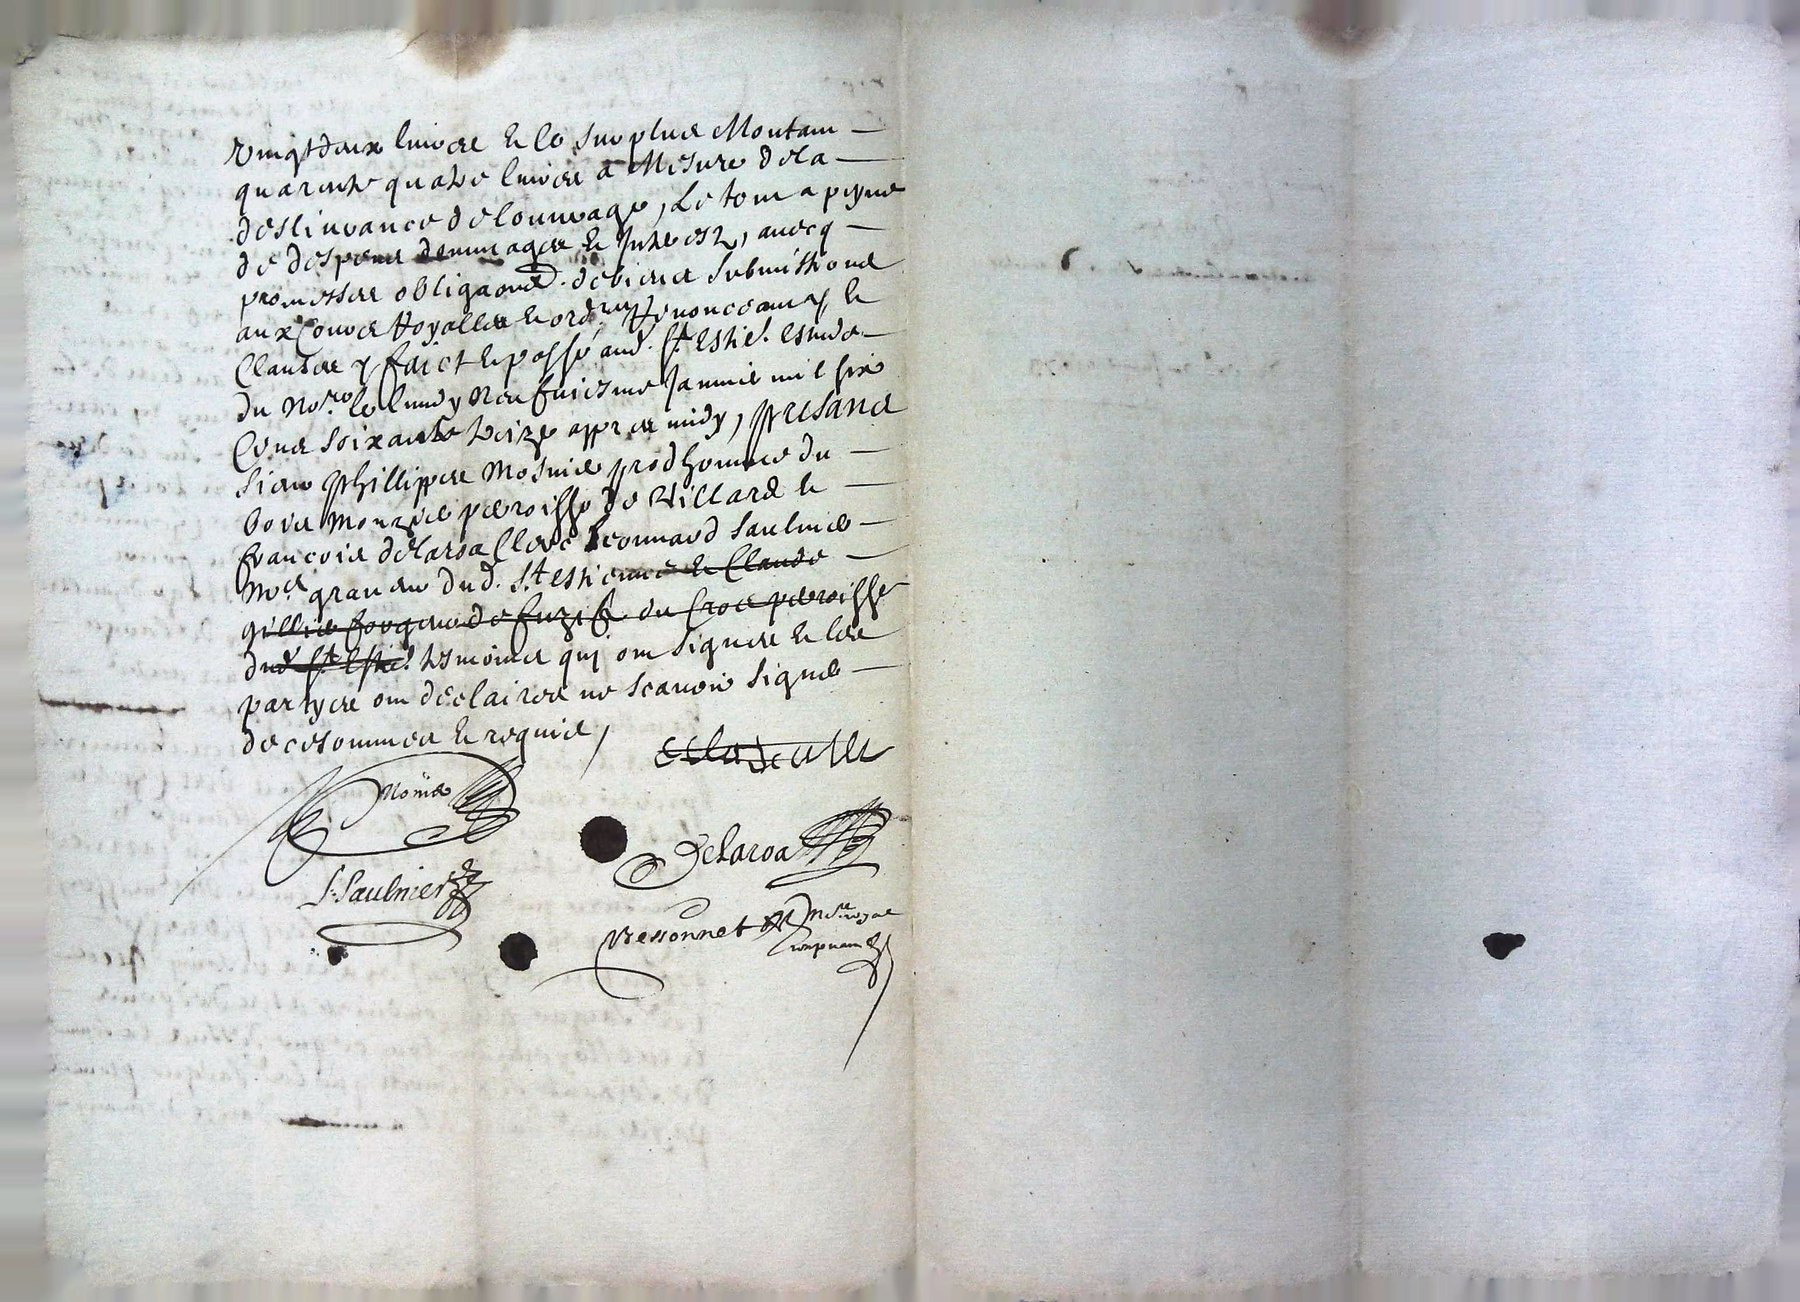 Vingtdeux livres & le surplus Montant
quarante quatre livres a Mesure dela
deslivrance de louvrage, Le tout a peyne
de despens dommages & Interestz, avecq
promesses obligaons. de biens submissions
aux Cours Royalles & ordres Renonceans, &
Clauses, faict & passé aud. St Estie. estude
du Nore. le lundy Neufviesme Janvie mil six
Cens soixante treize appres midy, presans
Sieur phillippes Mosnie prodhomme du
bois Monzie parroisse de Villars &
francois delaroa Clerc Leonnard saulnie
Me graveur dud. St estienne & Claude
gillie forgeur de fuzilz du Cros parroisse
dud St Estie. tesmoins quj ont signes & les
partyes ont declaires ne scavoir signe
de ce sommes & requis,
Monie
Delaroa
L. Saulnier
Bessonnet Nore royal